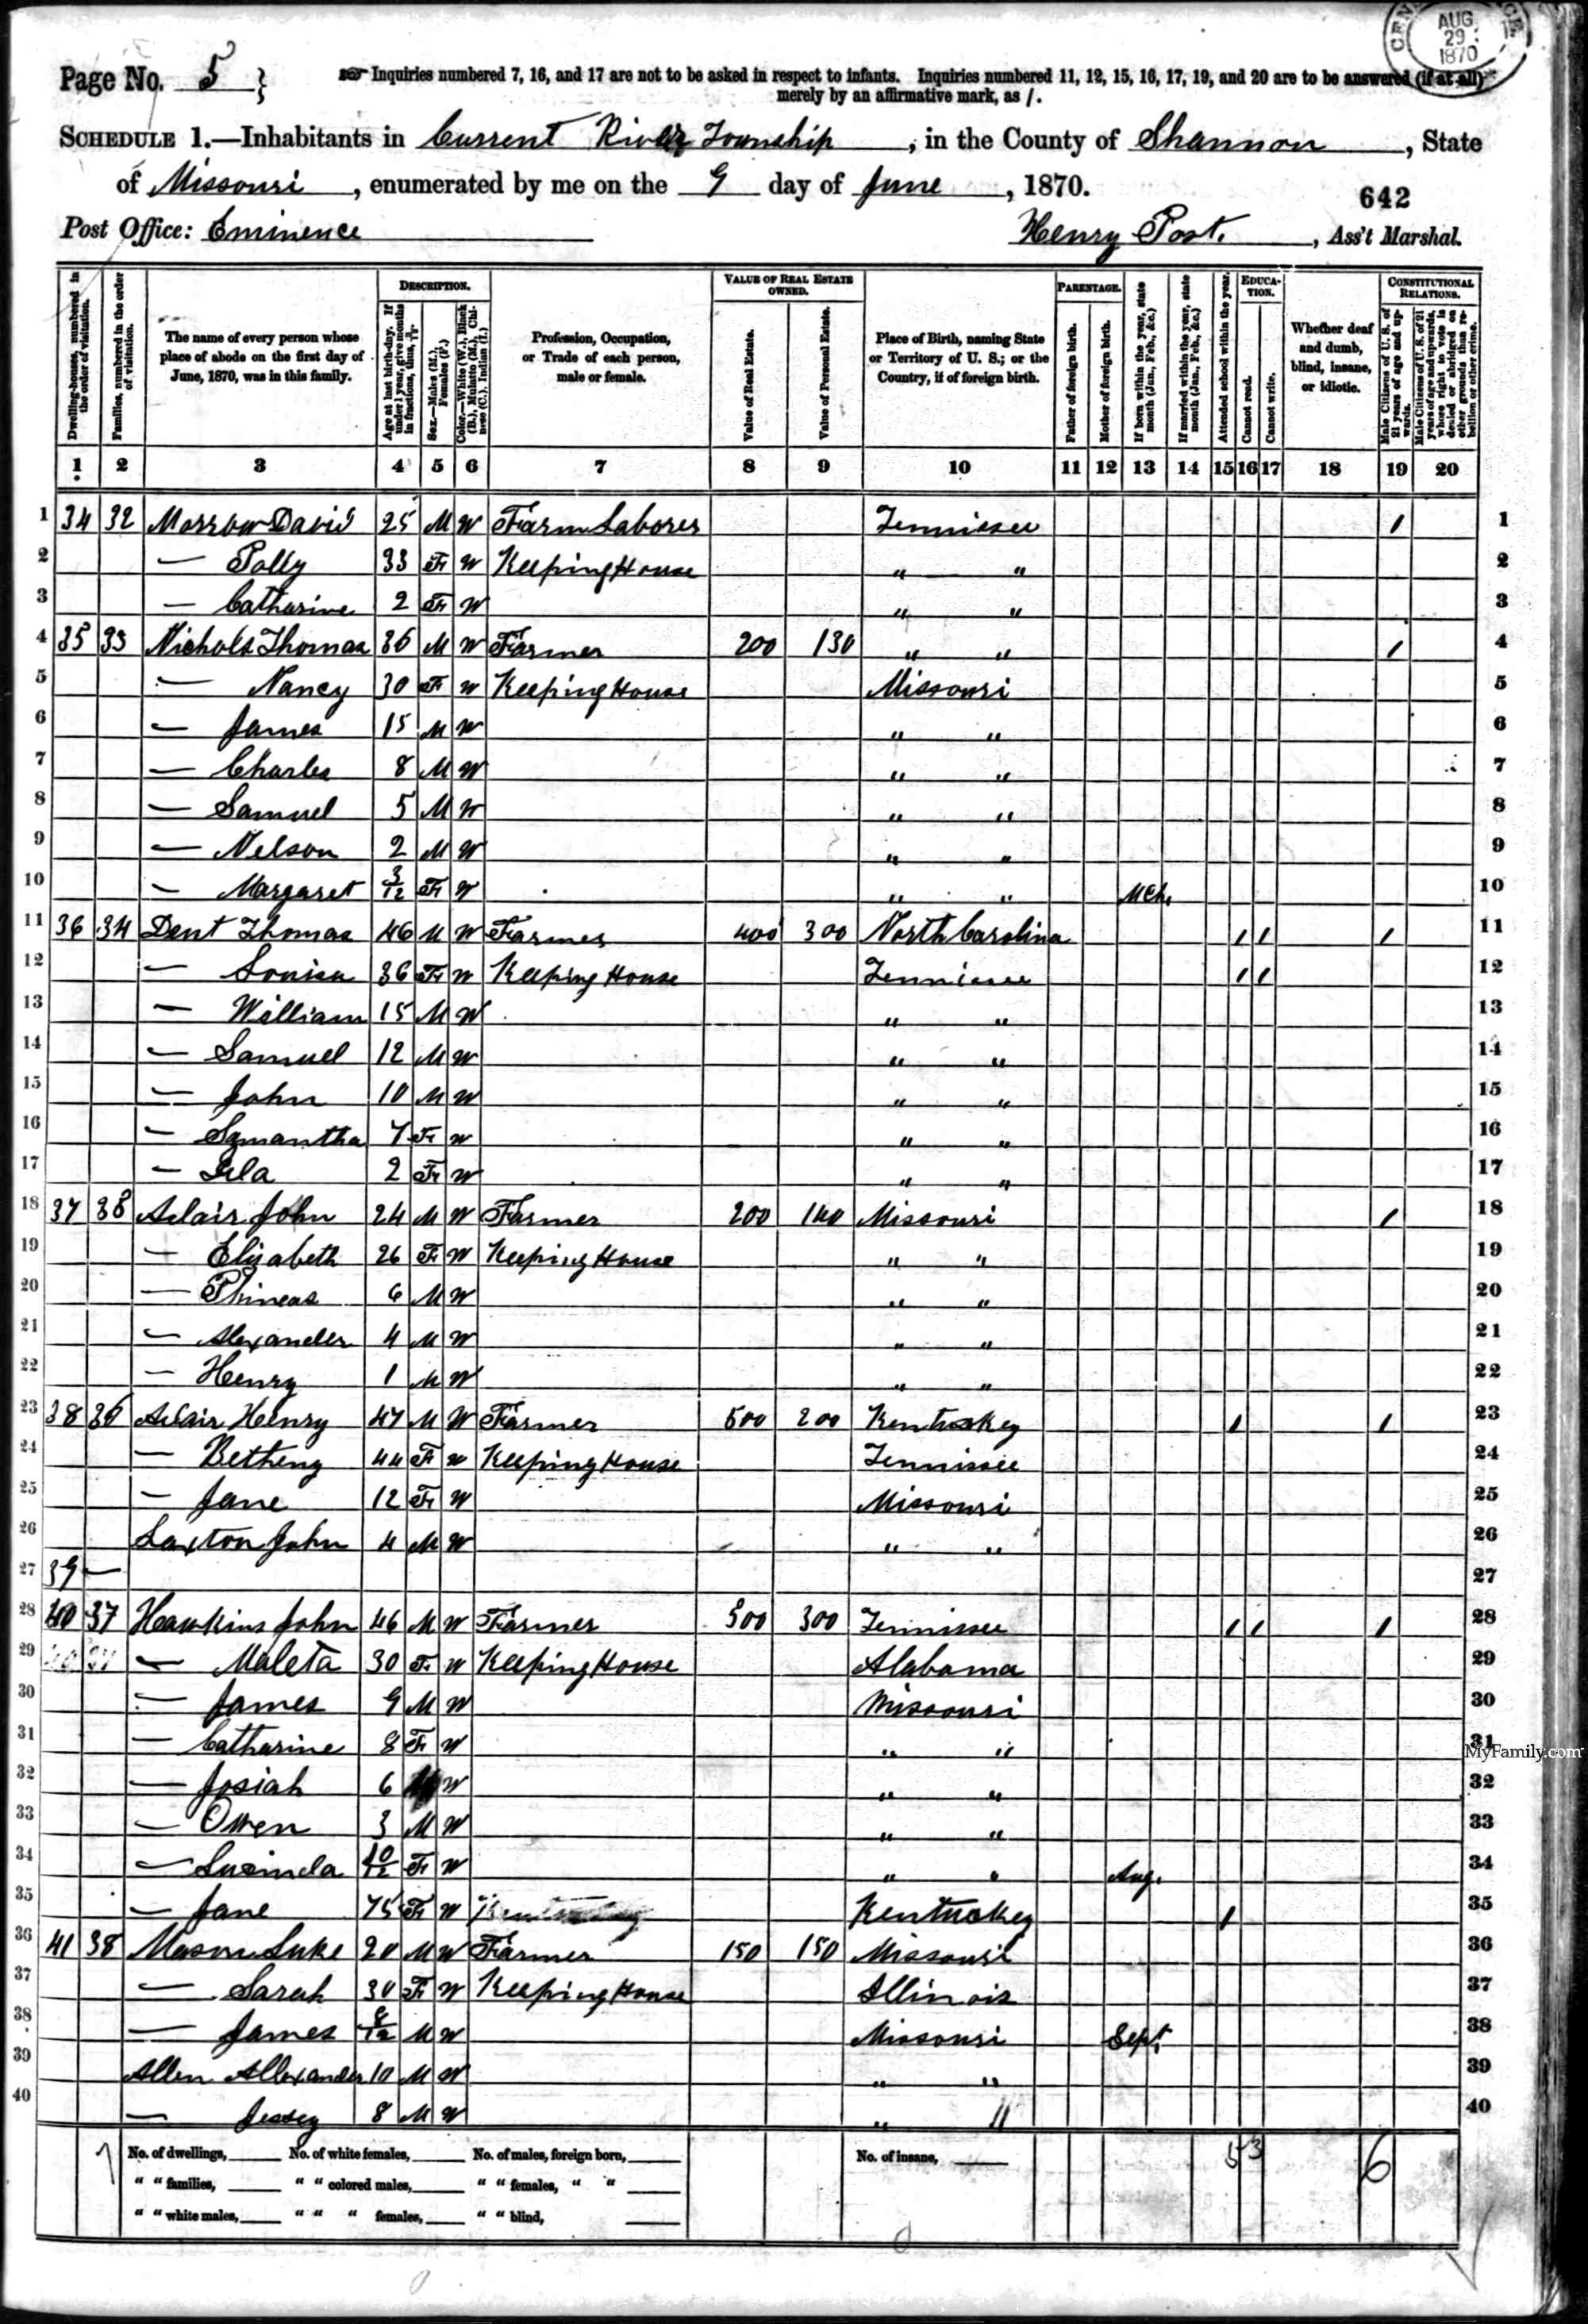 CEN CE.
AUG
29
1870
Page No. 5 }
Inquiries numbered 7, 16, and 17 are not to be asked in respect to infants. Inquiries numbered 11, 12, 15, 16, 17, 19, and 20 are to be answered (if at all)
merely by an affirmative mark, as /.
SCHEDULE 1.—Inhabitants in Current River Township, in the County of Shannon, State
of Missouri, enumerated by me on the 9 day of June, 1870.
642
Post Office: Eminence Henry Post., Ass't Marshal.
Dwelling-houses, numbered in the order of visitation.
Families, numbered in the order of visitation.
The name of every person whose place of abode on the first day of June, 1870, was in this family.
DESCRIPTION.
Age at last birth-day. If under 1 year, give months in fractions, thus, 3/12
Sex.—Males (M.), Females (F.)
Color.—White (W.), Black (B.), Mulatto (M.), Chinese (C.), Indian (I.)
Profession, Occupation, or Trade of each person, male or female.
VALUE OF REAL ESTATE OWNED.
Value of Real Estate.
Value of Personal Estate.
Place of Birth, naming State or Territory of U. S.; or the Country, if of foreign birth.
PARENTAGE.
Father of foreign birth.
Mother of foreign birth.
If born within the year, state month (Jan., Feb., &c.)
If married within the year, state month (Jan., Feb., &c.)
Attended school within the year.
EDUCATION.
Cannot read.
Cannot write.
Whether deaf and dumb, blind, insane, or idiotic.
CONSTITUTIONAL RELATIONS.
Male Citizens of U. S. of 21 years of age and upwards.
Male Citizens of U. S. of 21 years of age and upwards, whose right to vote is denied or abridged on other grounds than rebellion or other crime.
1 2 3 4 5 6 7 8 9 10 11 12 13 14 15 16 17 18 19 20
1 34 32 Morrow David 25 M W Farm Laborer Tennissee / 1
2 — Polly 33 F W Keeping House " " 2
3 — Catharine 2 F W " " 3
4 35 33 Nichols Thomas 36 M W Farmer 200 130 " " / 4
5 — Nancy 30 F W Keeping House Missouri 5
6 — James 15 M W " " 6
7 — Charles 8 M W " " 7
8 — Samuel 5 M W " " 8
9 — Nelson 2 M W " " 9
10 — Margaret 3/12 F W " " Mch. 10
11 36 34 Dent Thomas 46 M W Farmer 400 300 North Carolina / / / 11
12 — Louisa 36 F W Keeping House Tennissee / / 12
13 — William 15 M W " " 13
14 — Samuel 12 M W " " 14
15 — John 10 M W " " 15
16 — Samantha 7 F W " " 16
17 — 2 F W " " 17
18 37 Adair John 24 M W Farmer 200 140 Missouri / 18
19 — Elizabeth 26 F W Keeping House " " 19
20 — Phineas 6 M W " " 20
21 — Alexander 4 M W " " 21
22 — Henry 1 M W " " 22
23 38 36 Adair Henry 47 M W Farmer 500 200 Kentuckey / / 23
24 — Betheny 44 F W Keeping House Tennissee 24
25 — Jane 12 F W Missouri 25
26 Laxton John 4 M W " " 26
27 39 — 27
28 40 37 Hawkins John 46 M W Farmer 500 300 Tennissee / / / 28
29 — Maleta 30 F W Keeping House Alabama 29
30 — James 9 M W Missouri 30
31 — Catharine 8 F W " " 31
MyFamily.com
32 — Josiah 6 M W " " 32
33 — Owen 3 M W " " 33
34 — Lusinda 10/12 F W " " Aug. 34
35 — Jane 75 F W Kentuckey / 35
36 41 38 Mason Luke 20 M W Farmer 150 150 Missouri 36
37 — Sarah 30 F W Keeping House Illinois 37
38 — James M W Missouri Sept. 38
39 Allen Allexander 10 M W " " 39
40 — Jessey 8 M W " " 40
No. of dwellings, No. of white females, No. of males, foreign born, No. of insane, 53 6
" " families, " " colored males, " " females, " "
" " white males, " " " females, " " blind,